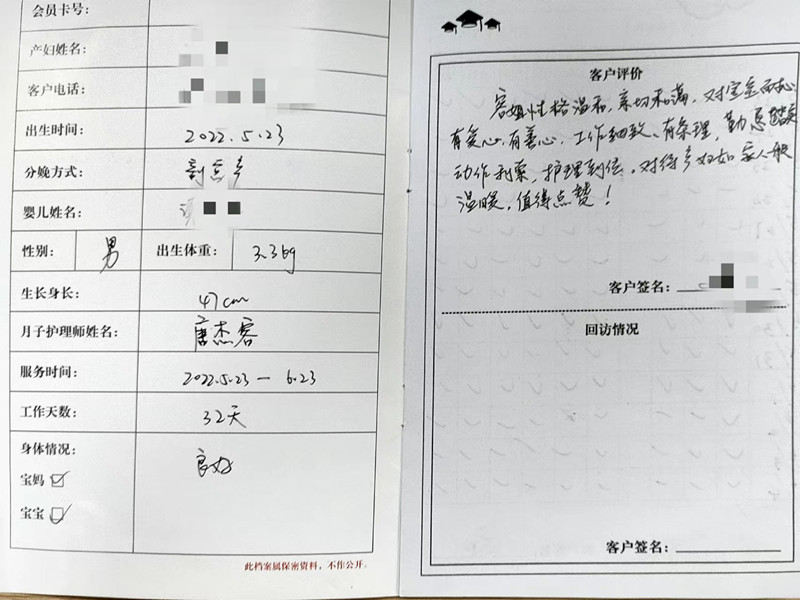 会员卡号:
产妇姓名:
客户电话:
出生时间: 2022.5.23
分娩方式: 剖宫产
婴儿姓名:
性别: 男 出生体重: 3.3kg
生长身长: 47cm
月子护理师姓名: 唐杰容
服务时间: 2022.5.23 — 6.23
工作天数: 32天
身体情况: 良好
宝妈
宝宝
此档案属保密资料，不作公开.
客户评价
容姐性格温和，亲切和蔼，对宝宝耐心
有爱心，有善心，工作细致、有条理，勤恳踏实
动作利索，护理到位，对待产妇如家人般
温暖，值得点赞！
客户签名:
回访情况
客户签名: